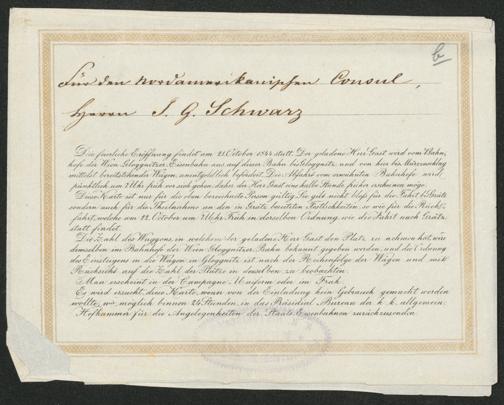 b
Für den Nordamerikanischen Consul,
Herrn J. G. Schwarz
Die feierliche Eröffnung findet am 21 October 1844 statt. Der geladene Herr Gast wird vom Bahn-
hofe der Wien Gloggnitzer Eisenbahn aus auf dieser Bahn bis Gloggnitz und von hier bis Mürzzuschlag
mittelst bereitstehender Wägen, unentgeldlich befördert. Die Abfahrt vom erwähnten Bahnhofe wird
pünktlich um Uhr früh vor sich gehen, daher der Herr Gast eine halbe Stunde früher erscheinen möge.
Diese Karte ist nur für die oben bezeichnete Person giltig. Sie gilt nicht bloß für die Fahrt bis Grätz
sondern auch für die Theilnahme an den in Grätz bereiteten Festlichkeiten, so wie für die Rück-
fahrt, welche am 22. October um Uhr Früh in derselben Ordnung, wie die Fahrt nach Grätz
statt findet.
Die Zahl des Waggons, in welchem der geladene Herr Gast den Platz zu nehmen hat, wird
demselben im Bahnhofe der Wien Gloggnitzer Bahn bekannt gegeben werden, und die Ordnung
des Einsteigens in die Wägen in Gloggnitz ist nach der Reihenfolge der Wägen und mit
Rücksicht auf die Zahl der Plätze in denselben zu beobachten.
Man erscheint in der Campagne Uniform oder im Frak.
Es wird ersucht, diese Karte, wenn von der Einladung kein Gebrauch gemacht werden
wollte, wo möglich binnen 24 Stunden, in das Präsidial Bureau der k. k. allgemein.
Hofkammer für die Angelegenheiten der Staats-Eisenbahnen zurückzusenden.